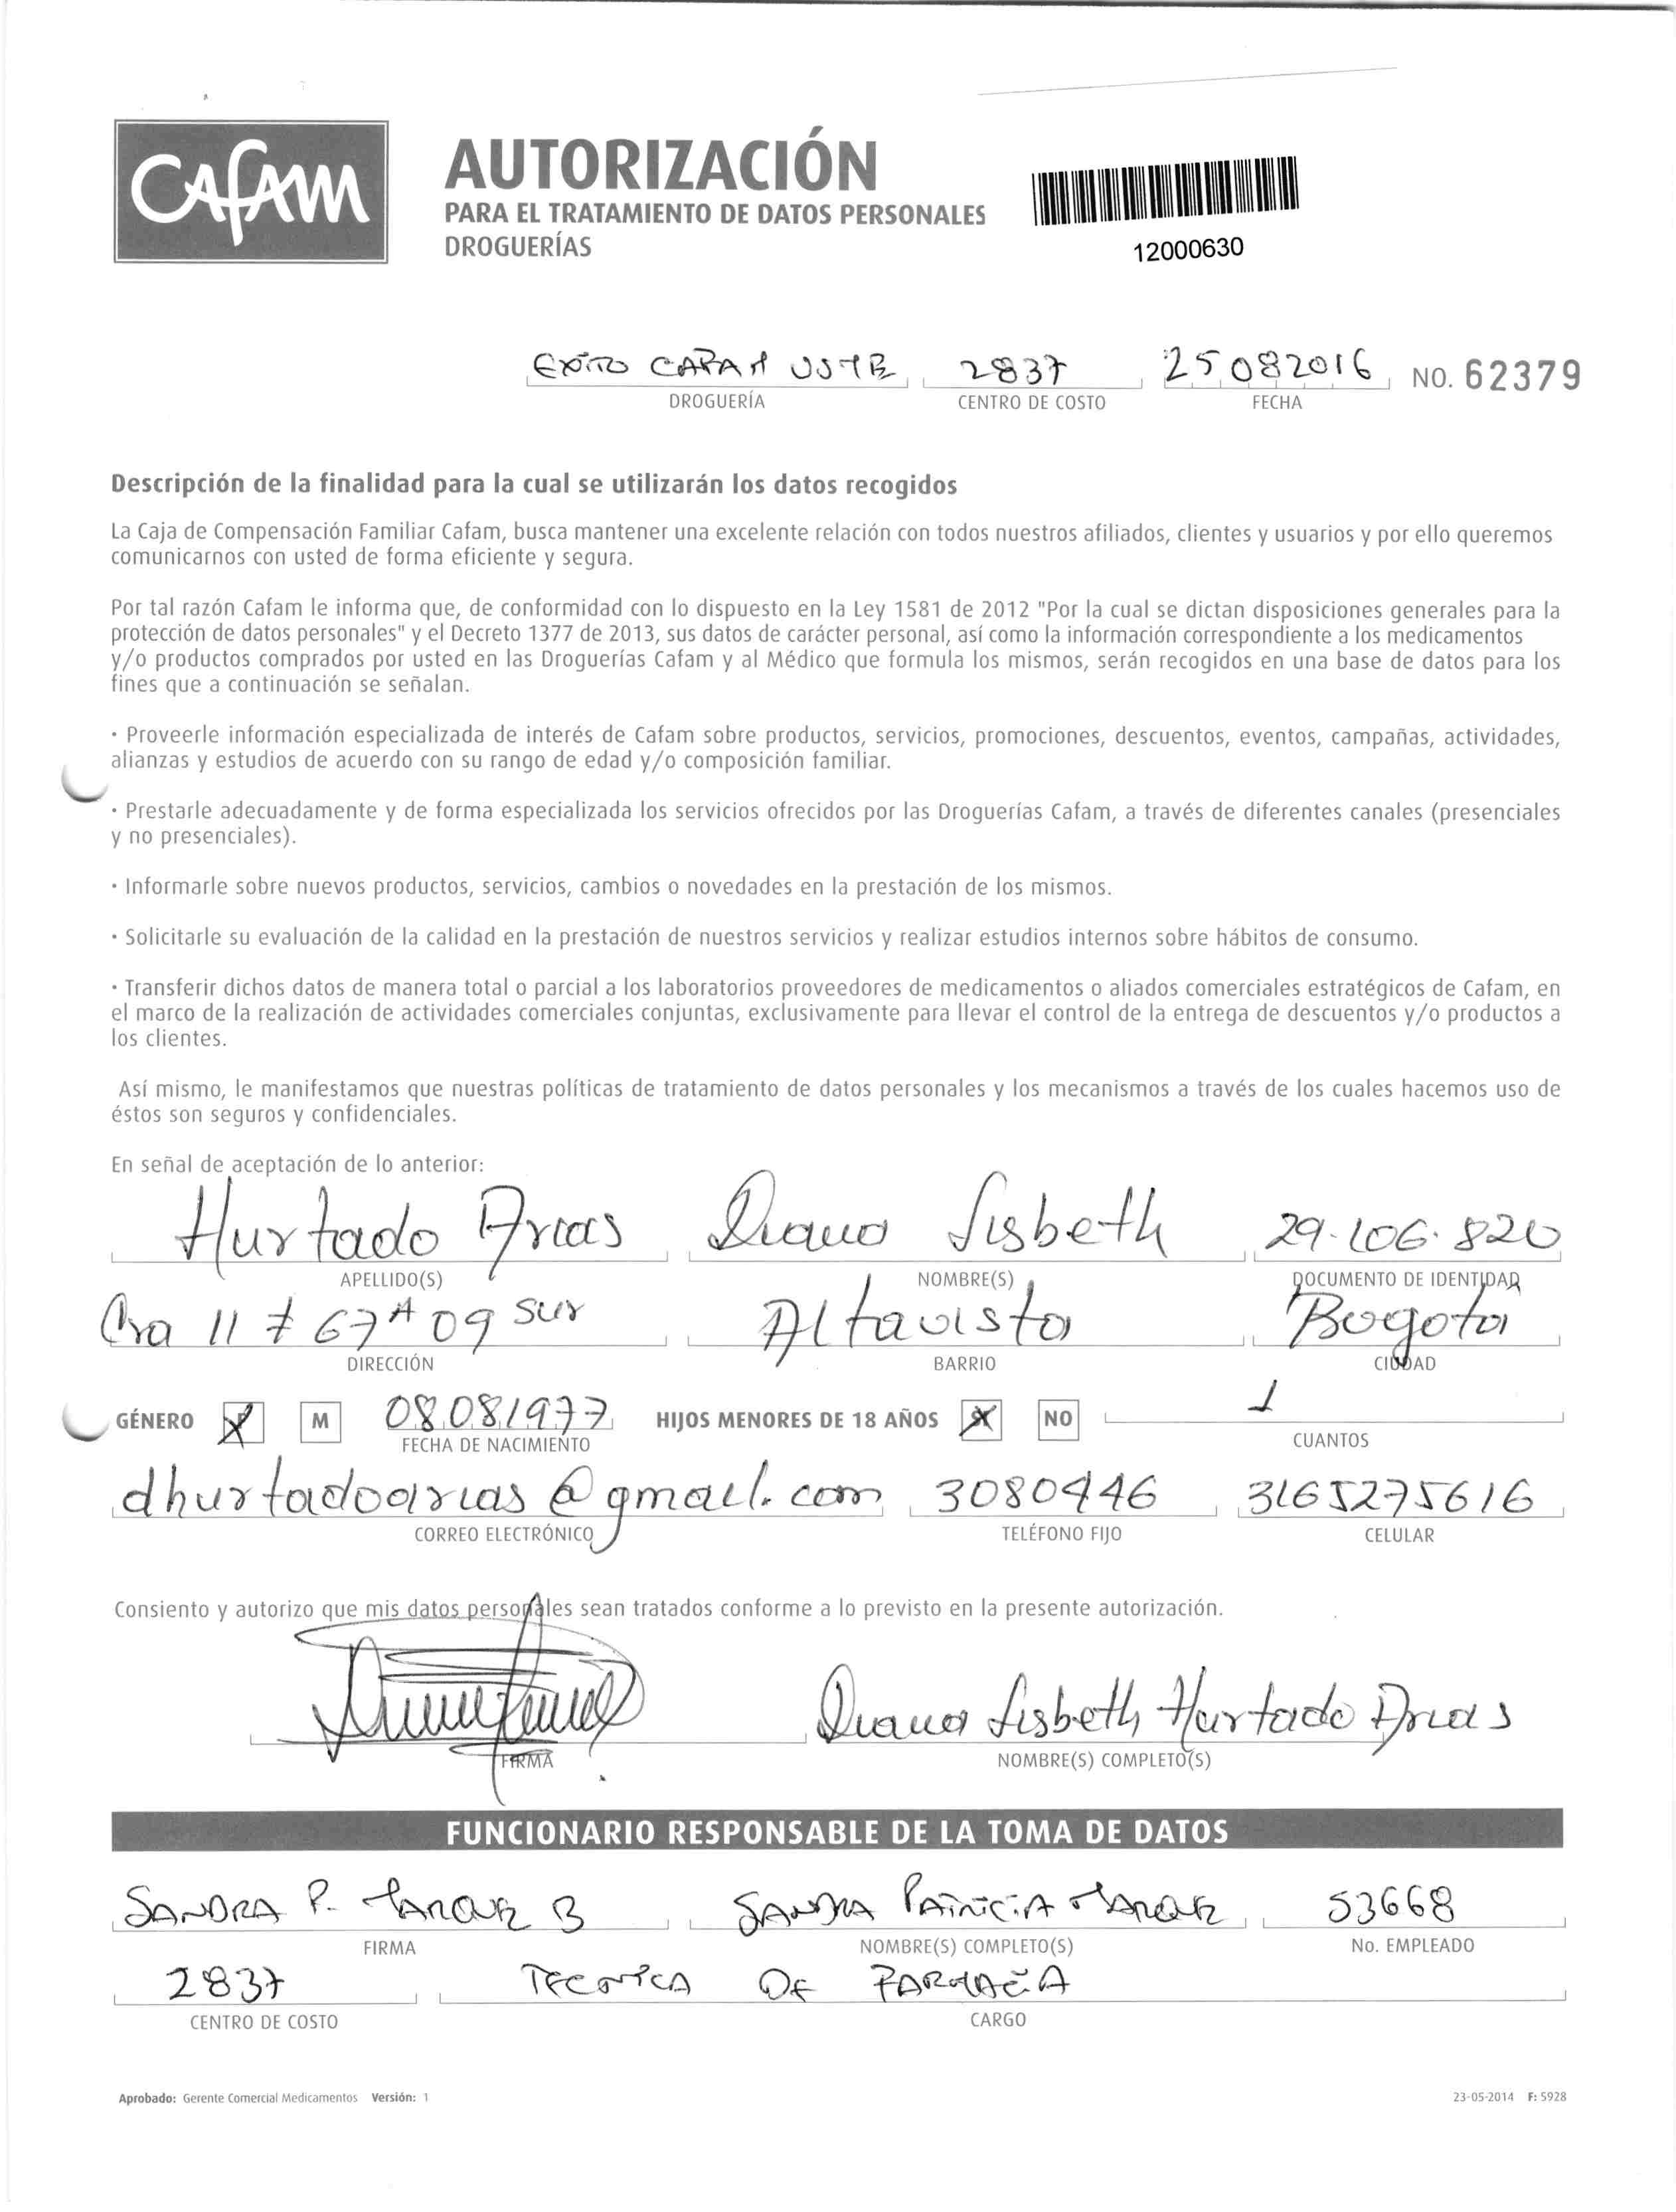 CAFAM
AUTORIZACIÓN
PARA EL TRATAMIENTO DE DATOS PERSONALES
DROGUERÍAS
12000630
EXITO CAFAM 2837 25082016 NO. 62379
DROGUERÍA CENTRO DE COSTO FECHA
Descripción de la finalidad para la cual se utilizarán los datos recogidos
La Caja de Compensación Familiar Cafam, busca mantener una excelente relación con todos nuestros afiliados, clientes y usuarios y por ello queremos
comunicarnos con usted de forma eficiente y segura.
Por tal razón Cafam le informa que, de conformidad con lo dispuesto en la Ley 1581 de 2012 "Por la cual se dictan disposiciones generales para la
protección de datos personales" y el Decreto 1377 de 2013, sus datos de carácter personal, así como la información correspondiente a los medicamentos
y/o productos comprados por usted en las Droguerías Cafam y al Médico que formula los mismos, serán recogidos en una base de datos para los
fines que a continuación se señalan.
· Proveerle información especializada de interés de Cafam sobre productos, servicios, promociones, descuentos, eventos, campañas, actividades,
alianzas y estudios de acuerdo con su rango de edad y/o composición familiar.
· Prestarle adecuadamente y de forma especializada los servicios ofrecidos por las Droguerías Cafam, a través de diferentes canales (presenciales
y no presenciales).
· Informarle sobre nuevos productos, servicios, cambios o novedades en la prestación de los mismos.
· Solicitarle su evaluación de la calidad en la prestación de nuestros servicios y realizar estudios internos sobre hábitos de consumo.
· Transferir dichos datos de manera total o parcial a los laboratorios proveedores de medicamentos o aliados comerciales estratégicos de Cafam, en
el marco de la realización de actividades comerciales conjuntas, exclusivamente para llevar el control de la entrega de descuentos y/o productos a
los clientes.
Así mismo, le manifestamos que nuestras políticas de tratamiento de datos personales y los mecanismos a través de los cuales hacemos uso de
éstos son seguros y confidenciales.
En señal de aceptación de lo anterior:
Hurtado Arias Diana Lisbeth 29.106.820
APELLIDO(S) NOMBRE(S) DOCUMENTO DE IDENTIDAD
Cra 11 # 67A 09 sur Altavista Bogotá
DIRECCIÓN BARRIO CIUDAD
GÉNERO X M 08081977 HIJOS MENORES DE 18 AÑOS X NO 1
FECHA DE NACIMIENTO CUANTOS
dhurtadoarias@gmail.com 3080446 3165275616
CORREO ELECTRÓNICO TELÉFONO FIJO CELULAR
Consiento y autorizo que mis datos personales sean tratados conforme a lo previsto en la presente autorización.
Diana Lisbeth Hurtado Arias
FIRMA NOMBRE(S) COMPLETO(S)
FUNCIONARIO RESPONSABLE DE LA TOMA DE DATOS
SANDRA P. B SANDRA PATRICIA 53668
FIRMA NOMBRE(S) COMPLETO(S) No. EMPLEADO
2837 TECNICA DE FARMACIA
CENTRO DE COSTO CARGO
Aprobado: Gerente Comercial Medicamentos Versión: 1 23-05-2014 F: 5928